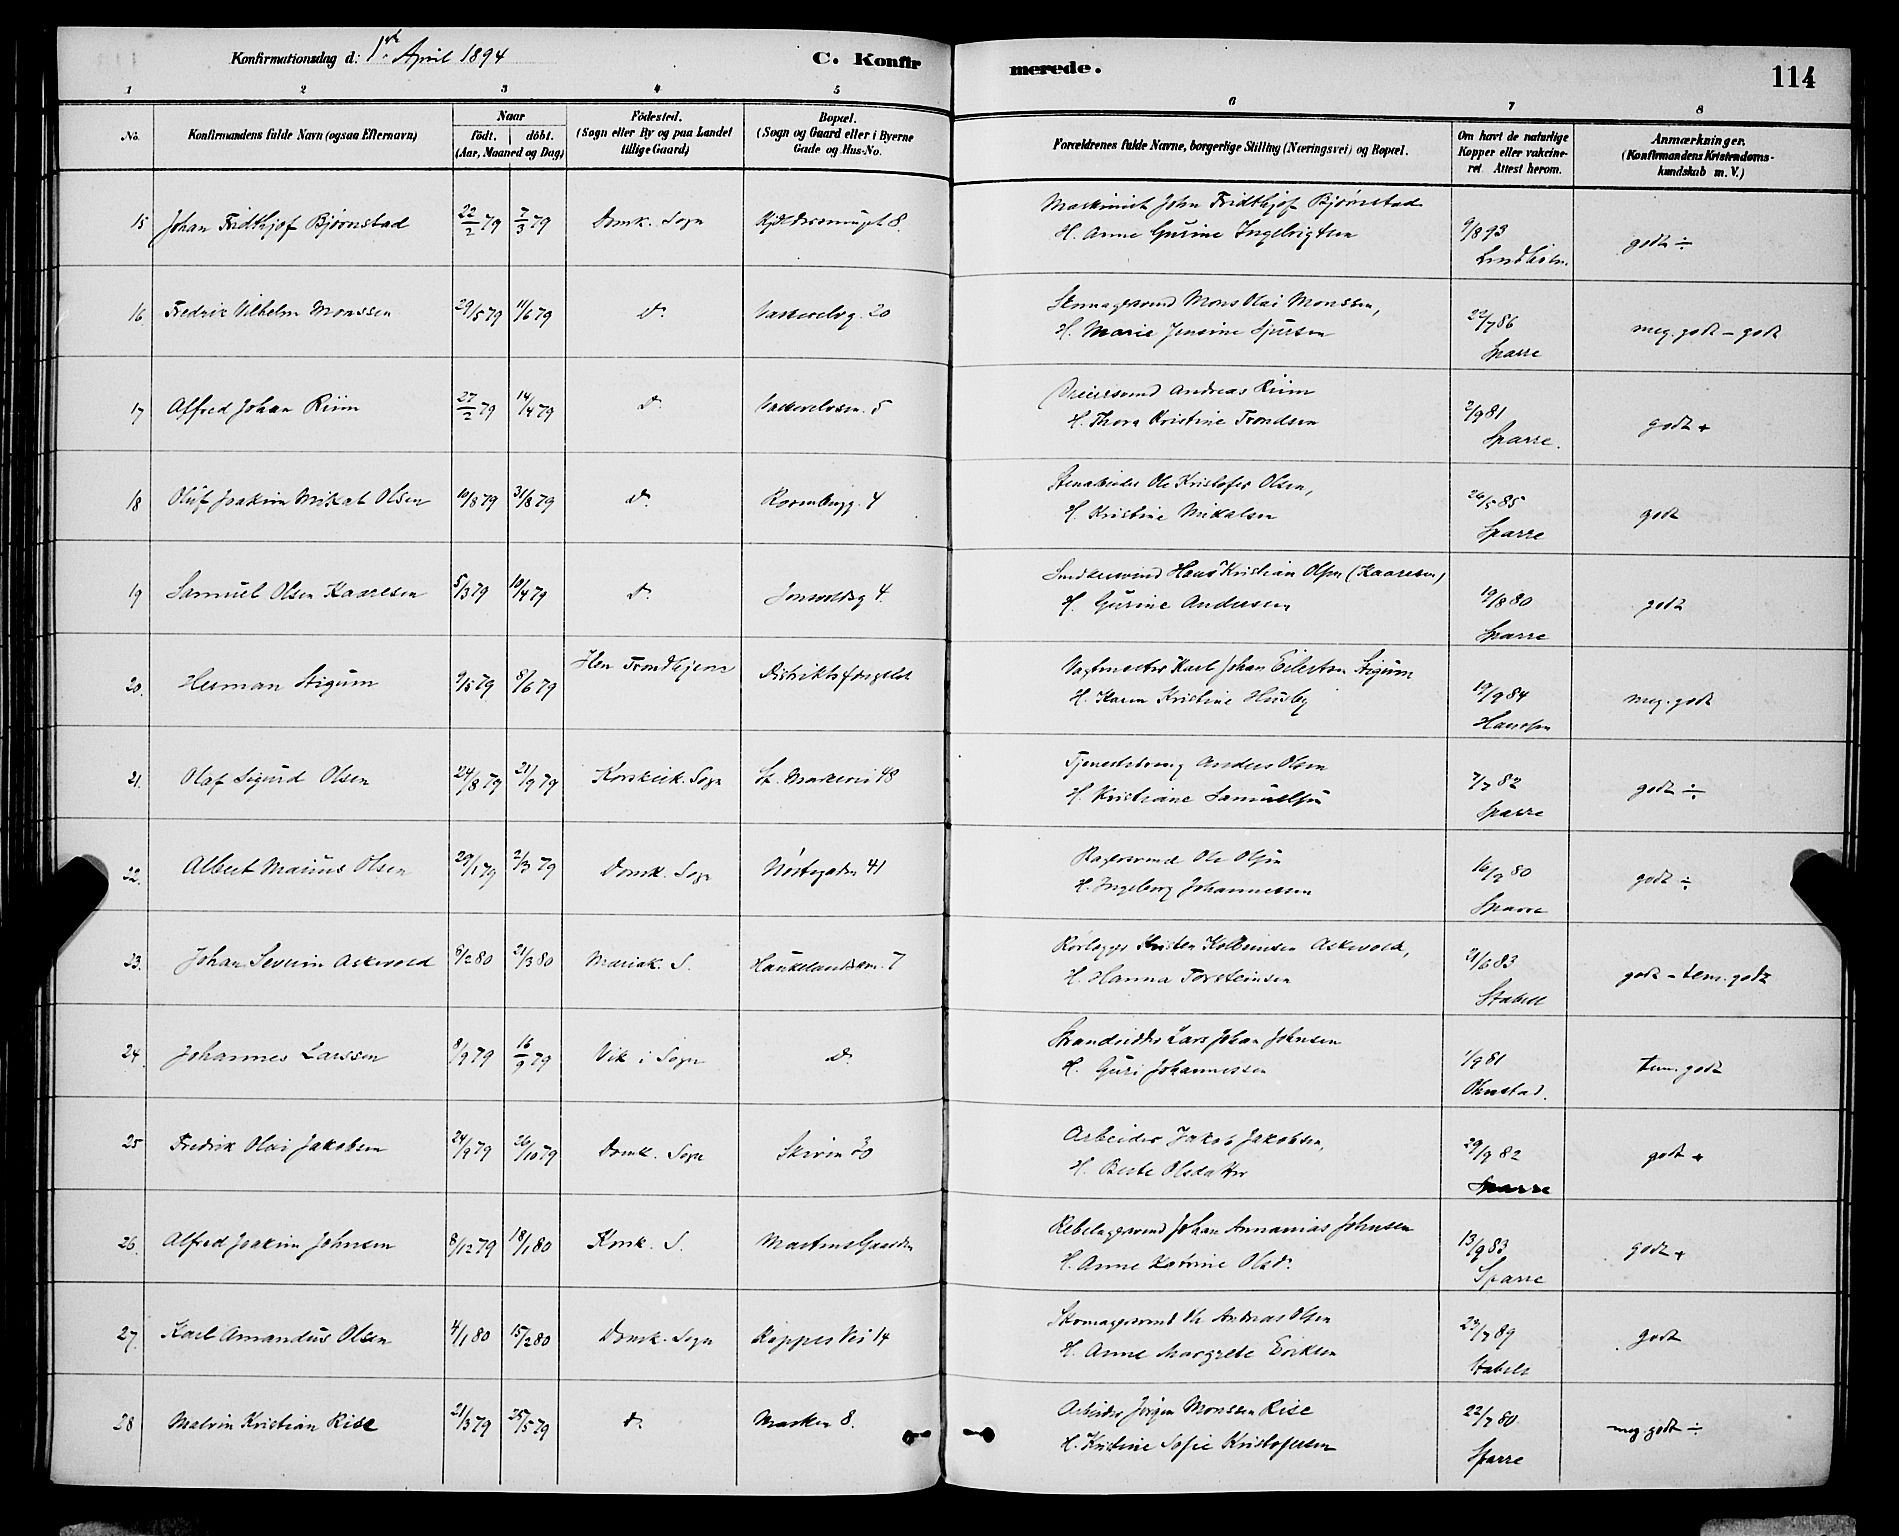 Konfirmationsdag d: 1ste April 1894
C. Konfirmerede.
114
1 2 3 4 5 6 7 8
No.
Konfirmandens fulde Navn (ogsaa Efternavn)
Naar
födt. döbt.
(Aar, Maaned og Dag)
Födested.
(Sogn eller By og paa Landet
tillige Gaard)
Bopæl.
(Sogn og Gaard eller i Byerne
Gade og Hus-No.
Forældrenes fulde Navne, borgerlige Stilling (Næringsvei) og Bopæl.
Om havt de naturlige
Kopper eller vakcine-
ret Attest herom.
Anmærkninger.
(Konfirmandens Kristendoms-
kundskab m. V.)
15 Johan Fridthjof Bjørnstad 22/2 79 7/3 79 Domk. Sogn 8. Maskinist John Fridthjof Bjørnstad
H. Anne Gurine Ingebrigtsen 9/8 93 godt ÷
Lindholm.
16 Fredrik Vilhelm Monssen 29/5 79 11/6 79 do. 20 Skomagersvend Mons Olai Monssen,
H. Marie Jensine Sjursen 22/7 86 meg. godt - godt
Sparre
17 Alfred Johan Riim 27/2 79 14/4 79 do. 5 Dreiersvend Andreas Riim
H. Thora Kristine Trondsen 2/9 81 godt +
Sparre.
18 Oluf Joakim Mikal Olsen 10/3 79 31/8 79 do. 4 Stenarbeider Ole Kristofer Olsen,
H. Kristine Mikalsen 26/5 85 godt
Sparre
19 Samuel Olsen Kaaresen 5/3 79 10/4 79 do. 4. Snedkersvend Hans Kristian Olsen (Kaaresen)
H. Gurine Andersen 19/8 80 godt
Sparre
20. Herman Stigum 9/5 79 8/6 79 Trondhjem Distriktsfængslet Vagtmester Karl Johan Eilertsen Stigum
H. Karen Kristine Husby 19/9 84 meg. godt
Hanssen
21. Olaf Sigurd Olsen 24/8 79 21/9 79 Korskirk. Sogn St. Markevei 48 Anders Olsen
H. Kristiane Samuelsen 7/7 82 godt ÷
Sparre
22. Albert Marius Olsen 29/1 79 2/3 79 Domk. Sogn Nöstegaden 41 Bagersvend Ole Olsen
H. Ingeborg Johannessen 16/9 80 godt ÷
Sparre
23. Johan Severin Askevold 8/2 80 21/3 80 Mariak. S. 7 Rørlægger Kolbeinsen Askevold,
H. Hanna Torsteinsen 21/6 83 godt - tem. godt
Stabell
24. Johannes Larssen 8/9 79 16/9 79 Vik i Sogn do. Strandsidder Lars Johan Johnsen
H. Guri Johannessen 1/9 81 tem. godt
Ohnstad.
25 Fredrik Olai Jakobsen 24/9 79 26/10 79 Domk. Sogn Skiven 20 Arbeider Jakob Jakobsen,
H. Berte Olsdatter 29/9 82 godt +
Sparre
26. Alfred Joakim Johnsen 8/12 79 18/1 80 Korsk. S. Martens Gaarden Rebslagersvend Johan Annanias Johnsen
H. Anne Katrine Olsd. 13/9 83 godt +
Sparre
27. Karl Amandus Olsen 4/1 80 15/2 80 Domk. Sogn Kippersvei 14 Skomagersvend Ole Andreas Olsen
H. Anne Margrete Eriksen 23/7 89 godt
Stabell
28 Malvin Kristian Rise 21/3 79 25/5 79 do. Marken 8. Arbeider Jörgen Monssen Rise
H. Kristine Sofie Kristofersen 22/7 80 meg. godt ÷
Sparre